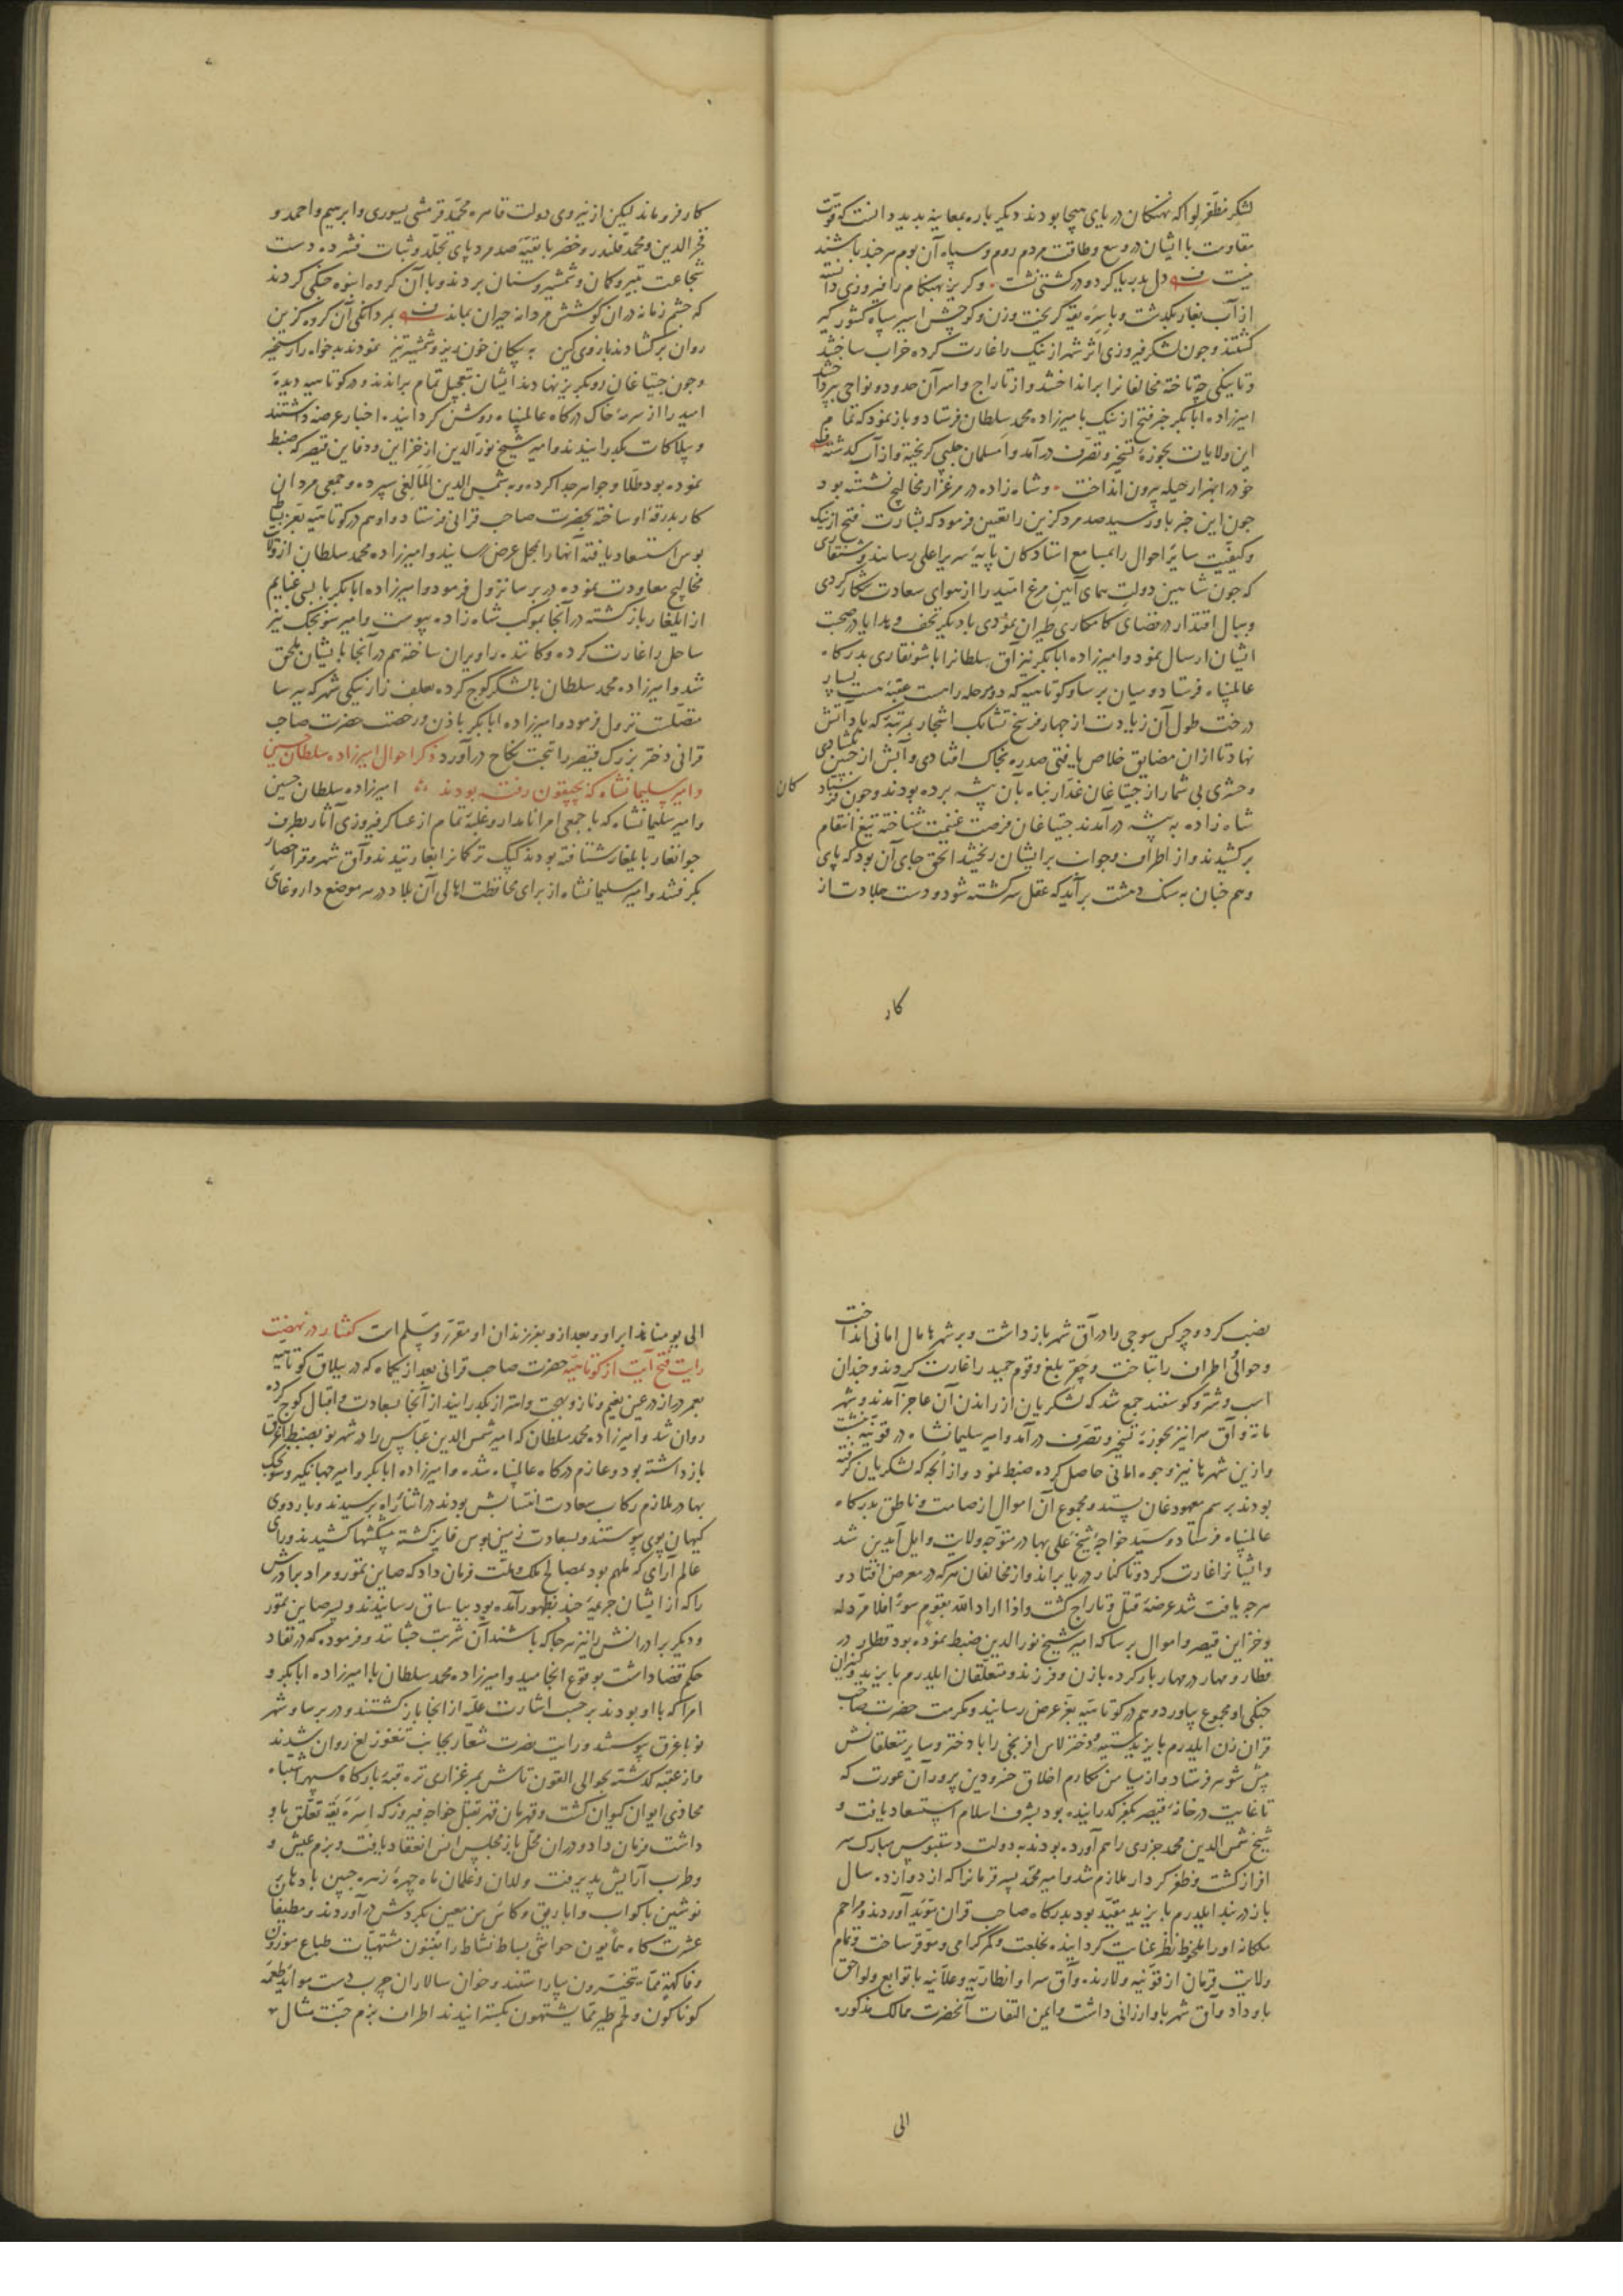 لشکر مظفر لوا که نهنکان دریای هیجا بودند دیکر باره بمعاینه بدید دانست که قوت
مقاومت با ایشان در وسع وطاقت مردم روم وسپاه آن بوم هرچند باشند
نیست دل بدریا کرد و در کشتی نشست وکریز بهنکام را فیروزی دانسته
از آب بغاز بکذشت وبا یسره یقه کریخت وزن وکوچش اسیر سپاه کشور کیر
کشتند وجون لشکر فیروزی اثر شهر ازنیک را غارت کرده خراب ساختند
وتا یینکی جه تاخته مخالفانرا برانداختند واز تاراج واسر آن حدود ونواحی بپرداختند
امیرزاده ابابکر خبر فتح ازنیک بامیرزاده محمد سلطان فرستاد وباز نمود که تمام
این ولایات بحوزهٔ تسخیر وتصرف درآمد واسلمان جلبی کریخته واز آب کذشته
خود را بهزار حیله بیرون انداخت وشاه زاده در مرغزار مخالیج نشسته بود
جون این خبر باو رسید صد مرد کزین را تعیین فرمود که بشارت فتح ازنیک
وکیفیت سایر احوال را بمسامع استادکان پایهٔ سریر اعلی رسانند وشنقاری
که جون شاهین دولت همای آیین مرغ امید را از هوای سعادت شکار کردی
وببال اقتدار در فضای کامکاری طیران نمودی با دیکر تحف وهدایا در صحبت
ایشان ارسال نمود وامیرزاده ابابکر نیز آق سلطانرا با شونقاری بدرکاه
عالمپناه فرستاد ومیان برسا وکوتاهیه که دو مرحله راهست عقبه هست بسیار
درخت طول آن زیادت از جهار فرسخ تشابک اشجار بمرتبهٔ که باد آتش
نهاد تا ازان مضایق خلاص یافتی صد ره بخاک افتادی وآبش از جبین بکشادی
وحشری بی شمار از جیتاغان غدار پناه بآن بیشه برده بودند وجون فرستادکان
شاه زاده به بیشه درآمدند جیتاغان فرصت غنیمت شناخته تیغ انتقام
برکشیدند واز اطراف وجوانب برایشان ریختند الحق جای آن بود که پای
وهم جنان به سنک دهشت برآید که عقل سرکشته شود ودست جلادت از
کار
کار فرو ماند لیکن از نیروی دولت قاهره محمد قرمشی یسوری وابرهیم واحمد و
فخر الدین ومحمد قلندر وخضر با بقیهٔ صد مرد پای تجلد وثبات فشرده دست
شجاعت بتیر وکمان وشمشیر وسنان بردند وبا آن کروه انبوه جنکی کردند
که جشم زمانه دران کوشش مردانه حیران بماند بمردانکی آن کروه کزین
روان برکشادند بازوی کین به پیکان خون ریز وشمشیر تیز نمودند بدخواه را رستخیز
وجون جیتاغان رو بکریز نهادند ایشان بتعجیل تمام براندند ودر کوتاهیه دیدهٔ
امید را از سرمهٔ خاک درکاه عالمپناه روشن کردانید اخبار عرضه داشتند
وبیلاکات بکذرانیدند وامیر شیخ نور الدین از خزاین ودفاین قیصر که ضبط
نموده بود طلا وجواهر جدا کرده وبه شمس الدین المالغی سپرده وجمعی مردان
کار بدرقهٔ او ساخته بحضرت صاحب قرانی فرستاد واو هم در کوتاهیه بعز بساط
بوس استسعاد یافته آنها را بمحل عرض رسانید وامیرزاده محمد سلطان از ولایت
مخالیج معاودت نموده در برسا نزول فرمود وامیرزاده ابابکر با بسی غنایم
از ایلغار بازکشته در آنجا بموکب شاه زاده پیوست وامیر سونجک نیز
ساحل را غارت کرده وکاننده را ویران ساخته هم در آنجا بایشان ملحق
شد وامیرزاده محمد سلطان با لشکر کوج کرده بعلف زار نیکی شهر که ببرسا
متصلست نزول فرمود وامیرزاده ابابکر باذن ورخصت حضرت صاحب
قرانی دختر بزرک قیصر را بتحت نکاح درآورد ذکر احوال امیرزاده سلطان حسین
وامیر سلیمانشاه که بچپقون رفته بودند امیرزاده سلطان حسین
وامیر سلیمانشاه که با جمعی امرا نامدار وغلبهٔ تمام از عساکر فیروزی آثار بطرف
جوانغار بایلغار شتافته بودند کپک ترکمانرا بغارتیدند وآق شهر وقراحصار
بکرفتند وامیر سلیمانشاه از برای محافظت اهالی آن بلاد در هر موضع داروغای
نصب کرد وجرکس سوجی را در آق شهر بازداشت وبر شهرها مال امانی انداخت
وحوالی اطراف را بتاخت وجقر بلغ وقوم حمید را غارت کردند وجندان
اسب وشتر وکوسفند جمع شد که لشکریان از راندن آن عاجز آمدند وشهر
مانده وآق سرا نیز بحوزهٔ تسخیر وتصرف درآمد وامیر سلیمانشاه در قونیه بنشست
وازین شهرها نیز وجوه امانی حاصل کرده ضبط نمود واز آنجه که لشکریان کرفته
بودند برسم معهود غان بستد ومجموع آن اموال از صامت وناطق بدرکاه
عالمپناه فرستاد وسید خواجهٔ شیخ علی بهادر متوجه ولایت وایل آیدین شد
وایشانرا غارت کرد وتا کنار دریا براند واز مخالفان هرکه در معرض افتاد و
هرجه یافت شد عرضهٔ قتل وتاراج کشت واذا اراد الله بقوم سوءا فلا مرد له
وخزاین قیصر واموال برسا که امیر شیخ نور الدین ضبط نموده بود قطار در
قطار ومهار در مهار بار کرده با زن وفرزند ومتعلقان ایلدرم بایزید وکنیزان
جنکی او مجموع بیاورد وهم در کوتاهیه بعز عرض رسانید ومکرمت حضرت صاحب
قران زن ایلدرم بایزید دستینه دختر لاس افرنجی را با دختر وسایر متعلقانش
پیش شوهر فرستاد واز میامن مکارم اخلاق خسرو دین پرور آن عورت که
تا غایت در خانهٔ قیصر بکفر کذرانیده بود بشرف اسلام استسعاد یافت و
شیخ شمس الدین محمد جزری را هم آورده بودند به دولت دستبوس مبارک سر
افراز کشت وظفر کردار ملازم شد وامیر محمد پسر قرمانرا که از دوازده سال
باز در بند ایلدرم بایزید مقید بود بدرکاه صاحب قران مؤید آوردند ومراحم
ملکانه او را ملحوظ نظر عنایت کردانیده بخلعت وکمر کرامی وموقر ساخت وتمام
ولایت قرمان از قونیه ولارنده وآق سرا وانطاریه وعلائیه با توابع ولواحق
باو داد وآق شهر باو ارزانی داشت وبیمن التفات آنحضرت ممالک مذکوره
الی
الی یومنا هذا برا او وبعد ازو بفرزندان او مقرر ومسلم است کفتار در نهضت
رایت فتح آیت از کوتاهیه حضرت صاحب قرانی بعد از یکماه که در ییلاق کوتاهیه
بعمر دراز در عین نعیم وناز وبهجت واهتزاز بکذرانید از آنجا بسعادت واقبال کوج کرده
روان شد وامیرزاده محمد سلطان که امیر شمس الدین عباس را در شهر نو بضبط اغرق
بازداشته بود وعازم درکاه عالمپناه شده وامیرزاده ابابکر وامیر جهانکیر وسونجک
بهادر ملازم رکاب سعادت انتسابش بودند در اثناء راه برسیدند وباردوی
کیهان پوی پیوستند وبسعادت زمین بوس فایز کشته پیشکشها کشیدند ورای
عالم آرای که ملهم بود بمصالح ملک وملت فرمان داد که صاین تمور ومراد برادرش
را که از ایشان جریمهٔ جند بظهور آمده بود بیاساق رسانیدند وپسر صاین تمور
ودیکر برادرانش را نیز هرجا که باشند آن شربت جشانند وفرموده که در نفاد
حکم قضا داشت بوقوع انجامید وامیرزاده محمد سلطان با امیرزاده ابابکر و
امرا که با او بودند بر حسب اشارت علیه از انجا بازکشتند ودر برسا وشهر
نو باغرق پیوستند ورایت نصرت شعار بجانب تنغوزلغ روان شدند
واز عقبه کذشته بحوالی القون تاش بمرغزاری نزه قبهٔ بارکاه سپهر اشتباه
محاذی ایوان کیوان کشت وقهرمان قهر بقتل خواجه فیروز که اسره یقه تعلق باو
داشت فرمان داد ودران محل باز مجلس انس انعقاد یافت وبزم عیش و
وطرب آرایش پذیرفت ولدان وغلمان ماه جهرهٔ زهره جبین بادهای
نوشین باکواب واباریق وکاس من معین بکردش درآوردند ومطیفان
عشرت کاه همایون حواشی بساط نشاط را بفنون مشتهیات طباع موزون
وفاکهة مما یتخیرون بیاراستند وخوان سالاران جرب دست موائد اطعمه
کوناکون ولحم طیر مما یشتهون بکسترانیدند اطراف بزم جنت مثال